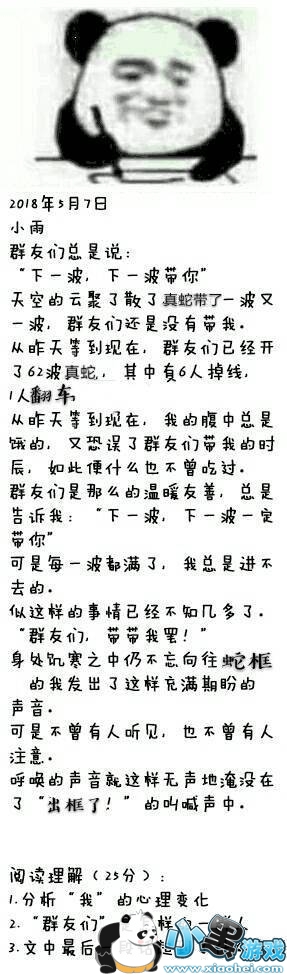 2018年5月7日
小雨
群友们总是说：
“下一波，下一波带你”
天空的云聚了散了真蛇带了一波又
一波，群友们还是没有带我。
从昨天等到现在，群友们已经开
了62波真蛇，其中有6人掉线，
1人翻车
从昨天等到现在，我的腹中总是
饿的，又恐误了群友们带我的时
辰，如此便什么也不曾吃过。
群友们是那么的温暖友善，总是
告诉我：“下一波，下一波一定
带你”
可是每一波都满了，我总是进不
去的。
似这样的事情已经不知几多了。
“群友们，带带我罢！”
身处饥寒之中仍不忘向往蛇框
的我发出了这样充满期盼的
声音。
可是不曾有人听见，也不曾有人
注意。
呼唤的声音就这样无声地淹没在
了“出框了！”的叫喊声中。
阅读理解（25分）：
1.分析“我”的心理变化
2.“群友们”
3.文中最后一段
小黑游戏
www.xiaohei.com